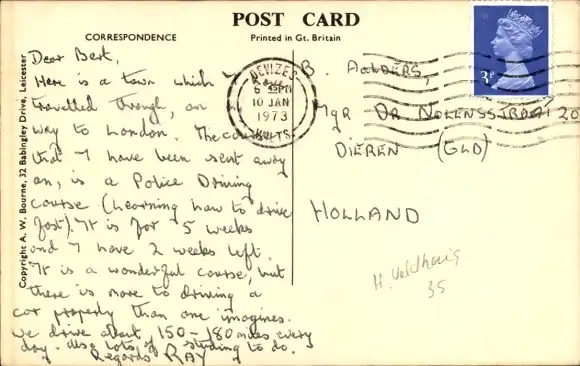 POST CARD
CORRESPONDENCE
Printed in Gt. Britain
Copyright A. W. Bourne, 32 Babingley Drive, Leicester
Dear Bert,
Here is a town which I have
travelled through, on
way to London. The course
that I have been sent away
on, is a Police Driving
course (Learning how to drive
fast). It is for 5 weeks
and I have 2 weeks left.
It is a wonderful course, but
there is more to driving a
car properly than one imagines.
We drive about 150-180 miles every
day. Also lots of studying to do.
Regards RAY
DEVIZES
6 45PM
10 JAN
1973
WILTS
3P
B. AALDERS,
Mgr DR NOLENSSTRAAT 20
DIEREN (GLD)
HOLLAND
H. Veldhuis
35